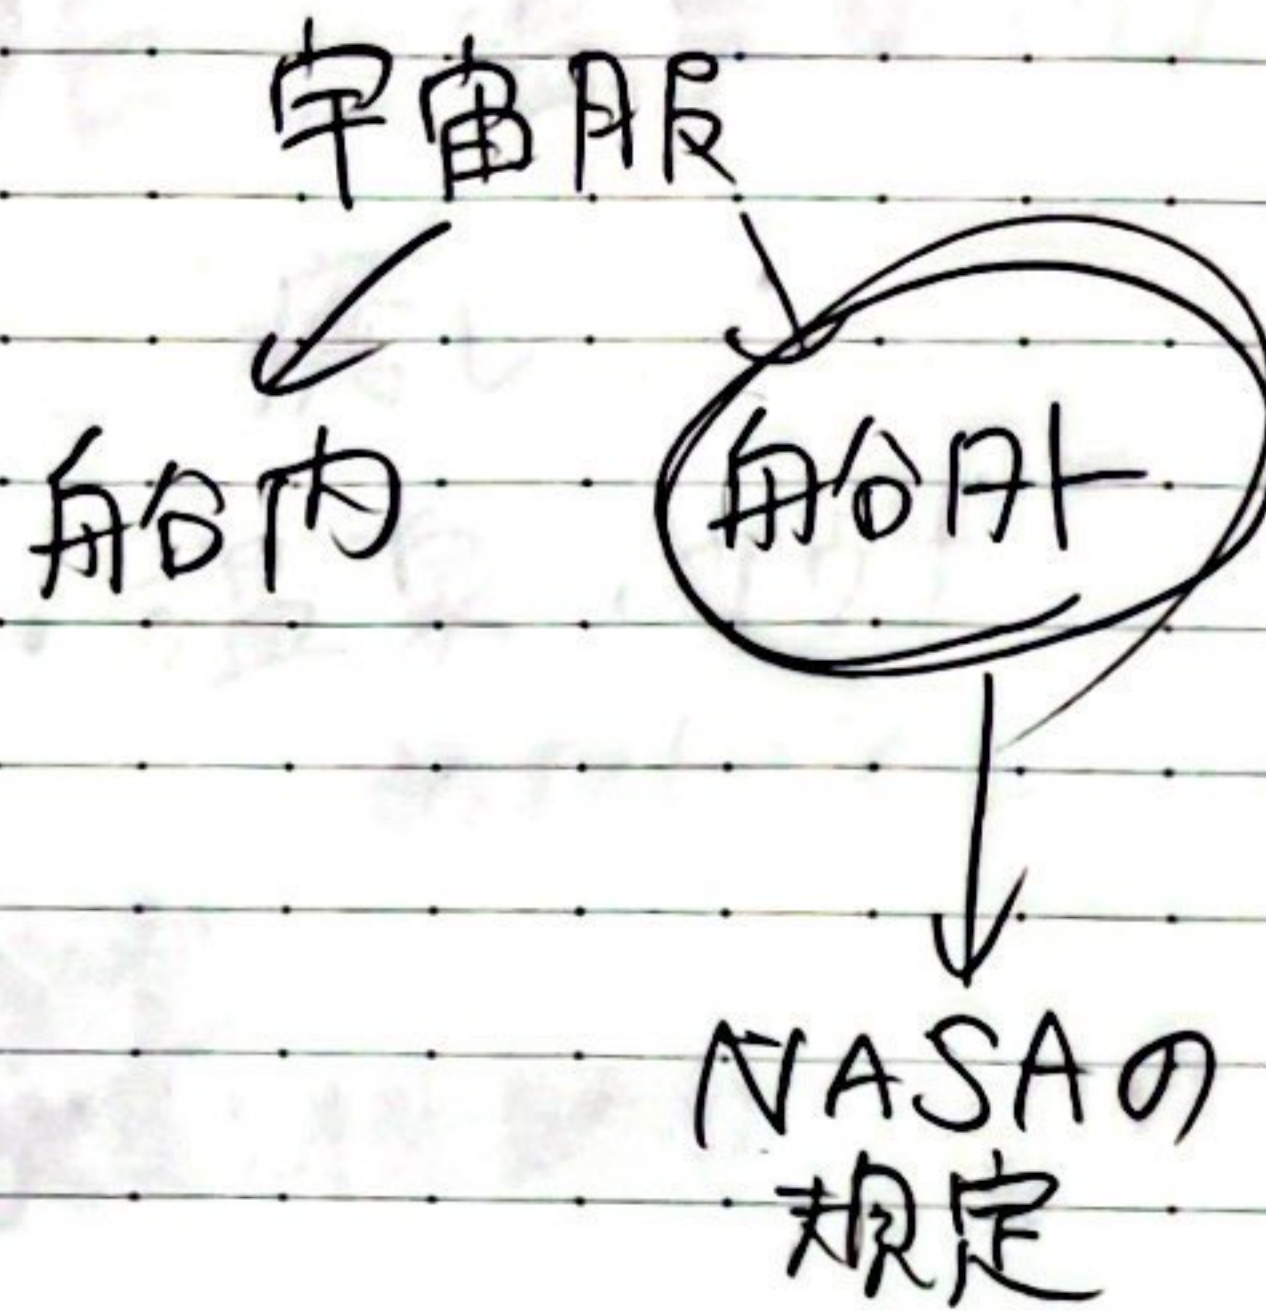 宇宙服
船内
船外
NASAの
規定